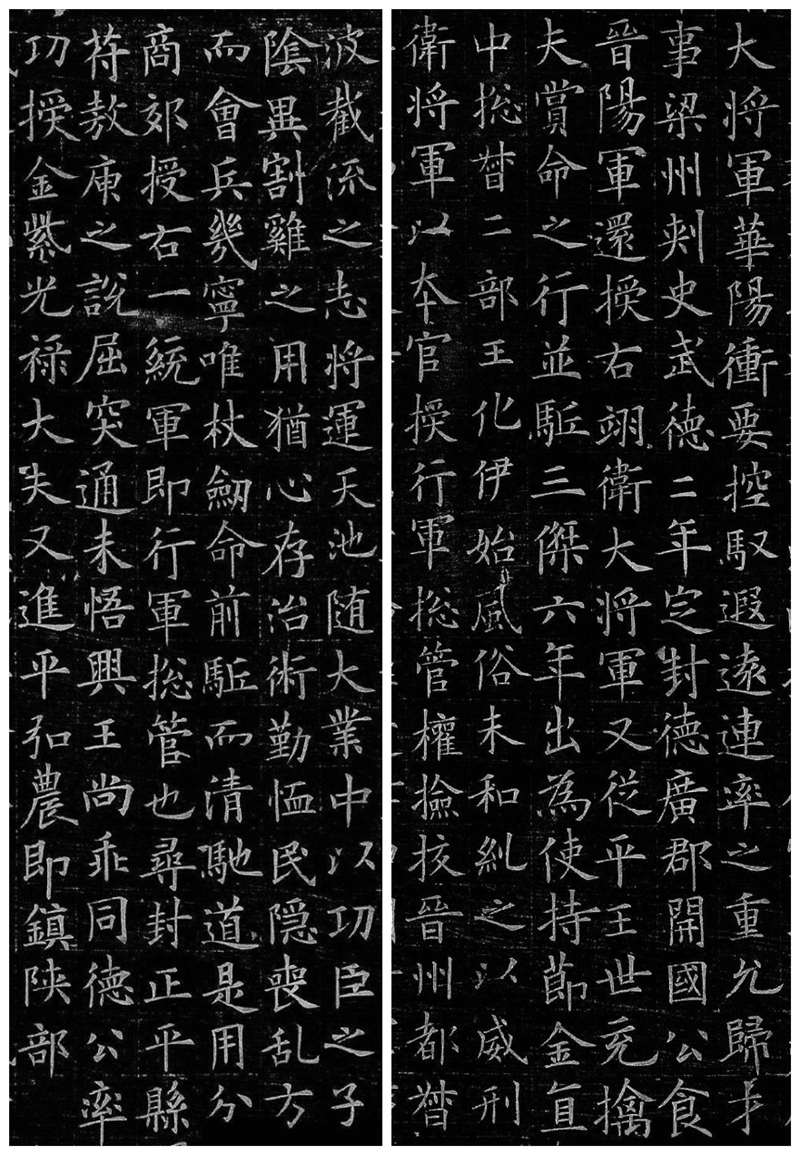 波截流之志将運天池随大業中以功臣之子
陰異割雞之用猶心存治術勤恤民隠喪乱方
而會兵幾寧唯杖劒命前駈而清馳道是用分
商郊授右一統軍即行軍揔管也尋封正平縣
苻敖庾之說屈突通未悟興王尚乖同德公率
功授金紫光禄大夫又進平弘農即鎮陝部
大将軍華陽衝要控馭遐遠連率之重允歸才
事梁州刾史武德二年定封德廣郡開國公食
晉陽軍還授右翊衛大将軍又從平王世充擒
夫賞命之行並駈三傑六年出為使持節金直
中揔督二部王化伊始風俗未和糺之以威刑
衛将軍以本官授行軍揔管權撿挍晉州都督